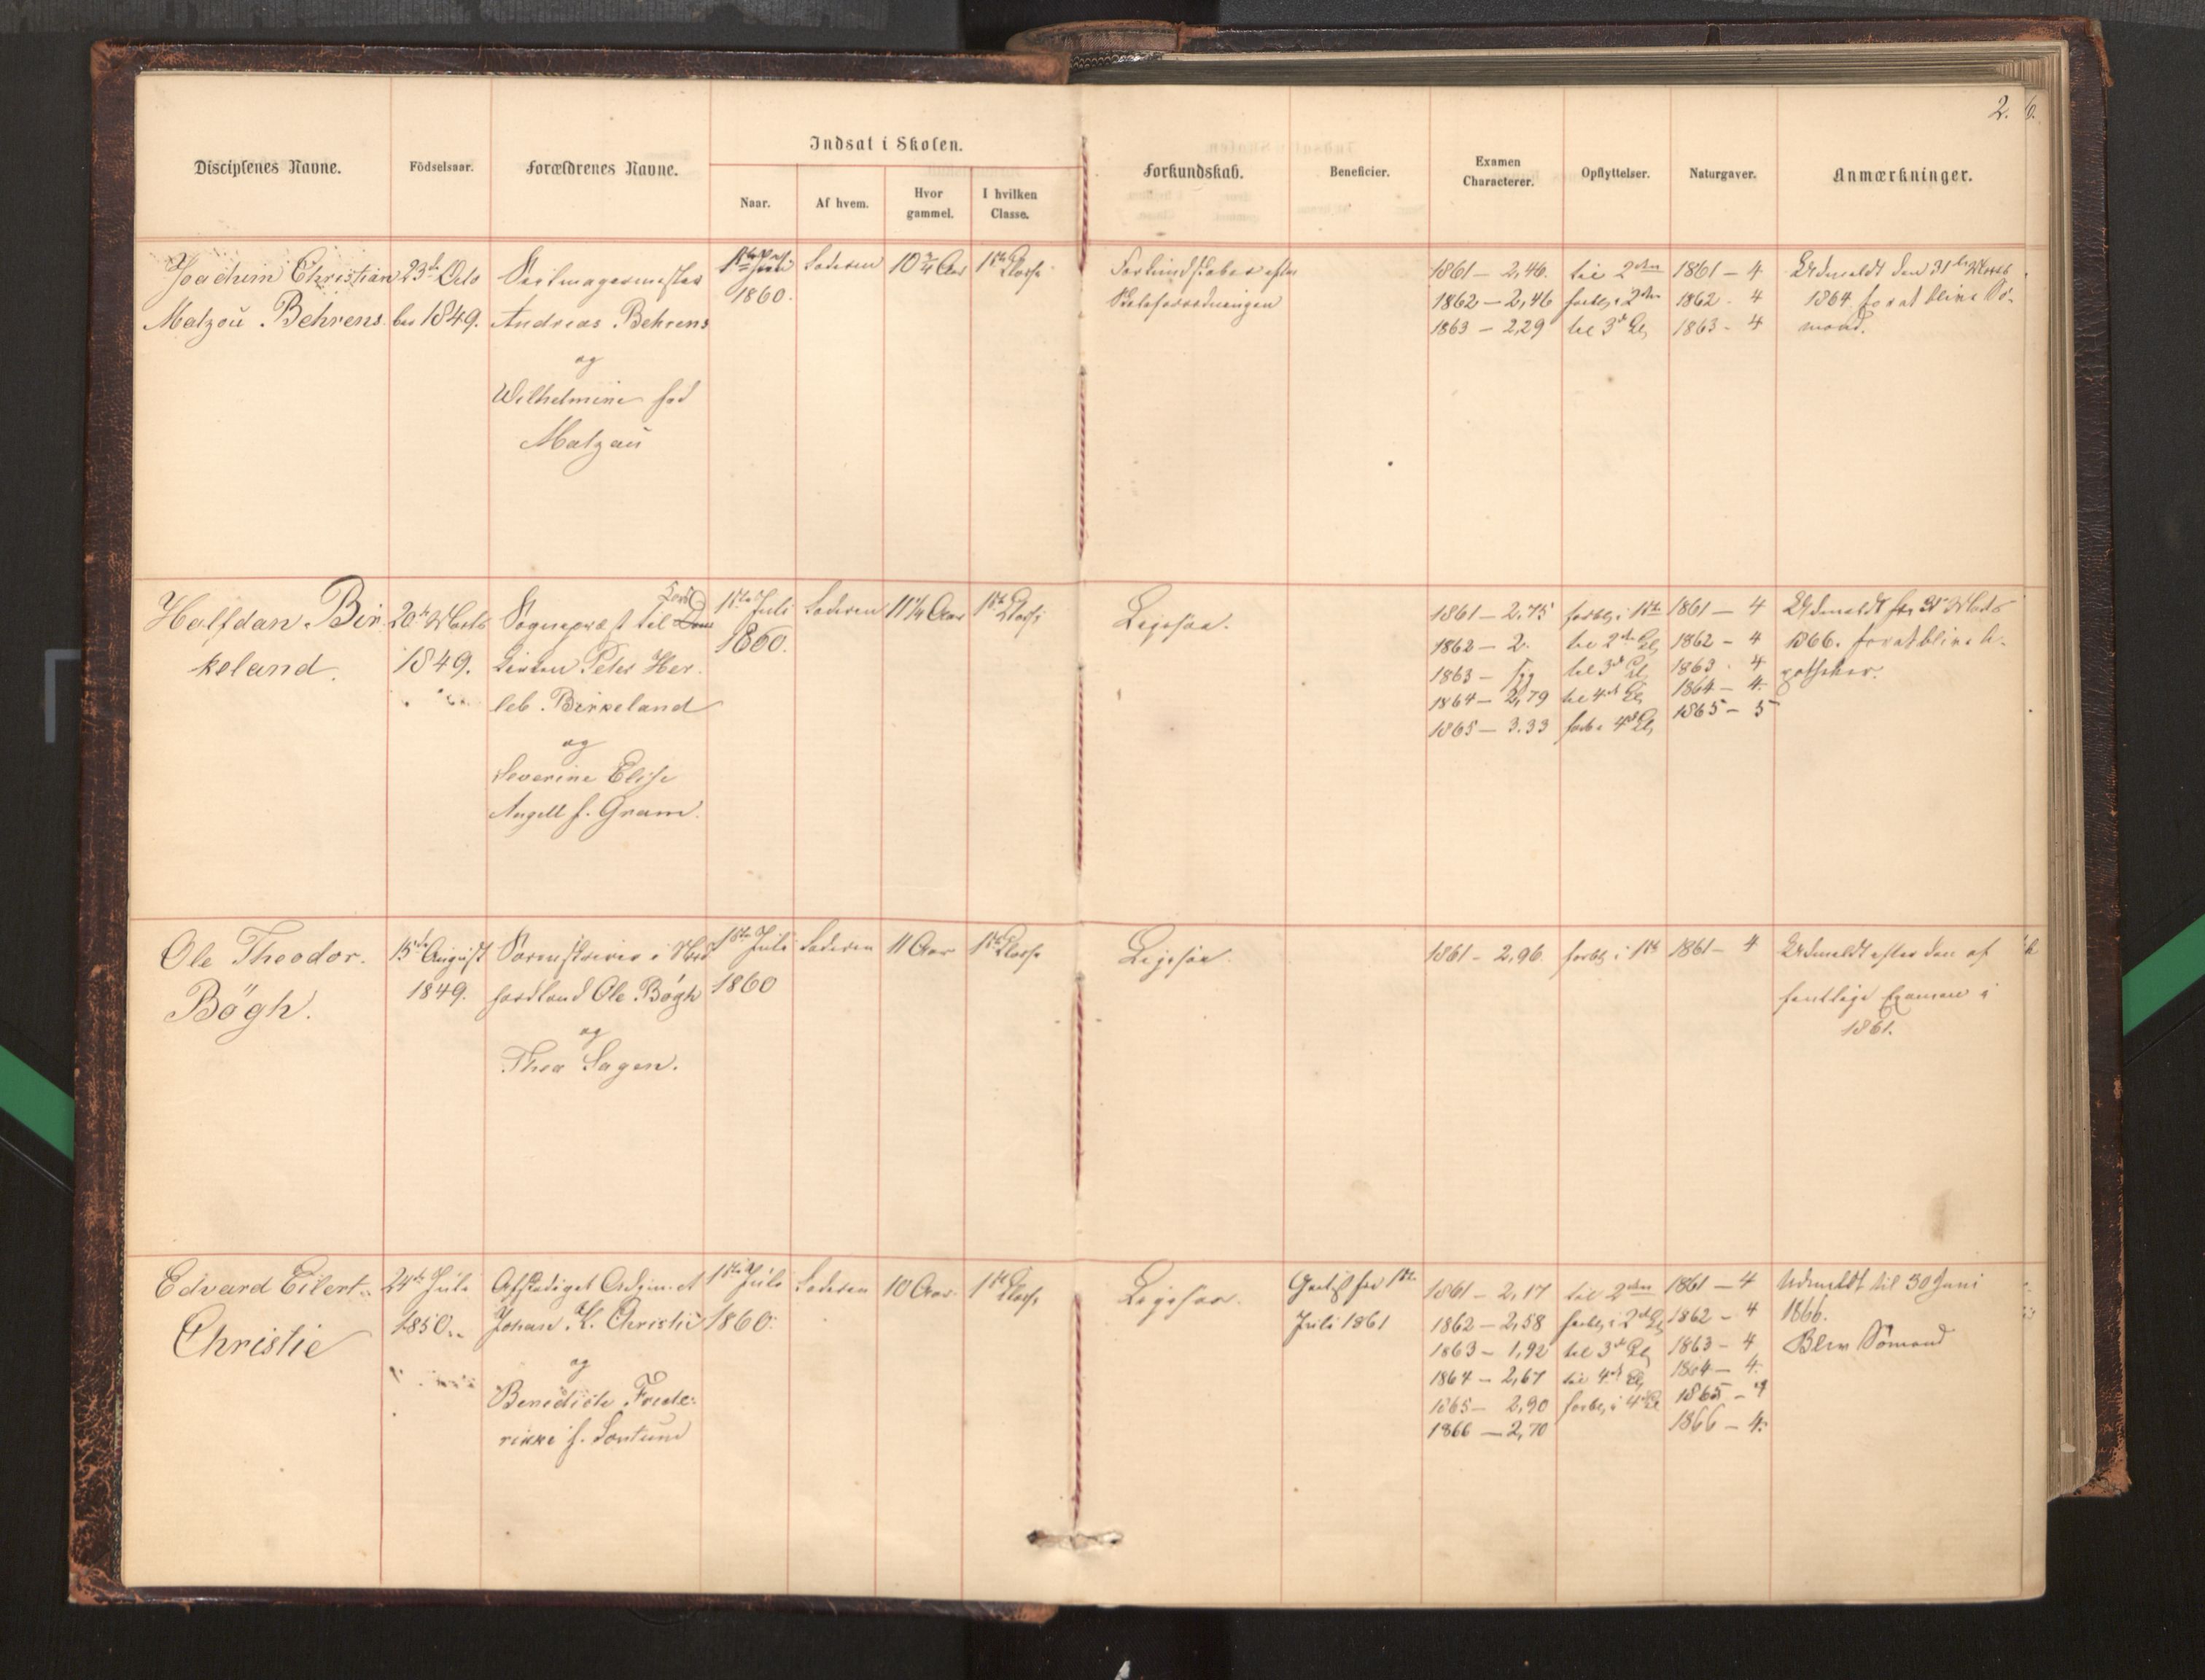 2.
Disciplenes Navne.
Födselsaar.
Forældrenes Navne.
Indsat i Skolen.
Naar.
Af hvem.
Hvor gammel.
I hvilken Classe.
Forkundskab.
Beneficier.
Examen Characterer.
Opflyttelser.
Naturgaver.
Anmærkninger.
Joachim Christian
Matzoü Behrens
23de Octo
ber 1849.
Seilmagermester
Andreas Behrens
og
Wilhelmine fød
Matzaü
1860.
Faderen
10 3/4 Aar
1ste Classe
Forkundskaber efter
Skoleforordningen
1861 – 2,46.
1862 – 2,46
1863 – 2,29
til 2den
forbl. i 2den
til 3de Cl,
1861 – 4
1862 – 4
1863 – 4
Udmeldt den 31te Marts
1864 for at blive Sø-
mand.
Halfdan Bir
keland.
20de Marts
1849.
Sognepræst til
Peter Her-
leb Birkeland
og
Severine Elise
Angell f. Gram.
1ste Juli
1860.
Faderen
11 1/4 Aar
1ste Classe
Ligesaa.
1861 – 2,75
1862 – 2.
1863 –
1864 – 2,79
1865 – 3.33
forbl, i 1ste
til 2den Cl,
til 3de Cl,
til 4de Cl,
forb i 4de Cl,
1861 – 4
1862 – 4
1863 – 4
1864 – 4.
1865 – 5
Udmeldt 31 Marts
1866. for at blive A-
potheker.
Ole Theodor.
Bögh.
15de August
1849.
Sorenskriver i Nord
fjordland Ole Bögh
og
Thea Sagen.
1ste Juli
1860
Faderen
11 Aar
1ste Classe
Ligesaa.
1861 – 2,96.
forbl, i 1ste
1861 – 4
Udmeldt efter den of
fentlige Examen i
1861.
Edvard Eilert
Christie
24de Juli
1850.
Afskediget Adjunct
Johan K. Christie
og
Benedicte Frede-
rikke f.
1ste Juli
1860.
Faderen
10 Aar.
1ste Classe
Ligesaa.
Gratist fra 1ste
Juli 1861
1861 – 2,17
1862 – 2,58
1863 – 1,92
1864 – 2,67
1865 – 2,90
1866 – 2,70
til 2den
forbl, i 2den Cl,
til 3de Cl,
til 4de Cl,
forbl, i 4de Cl
1861 – 4
1862 – 4
1863 – 4
1864 – 4.
1865 – 4
1866 – 4.
Udmeldt til 30 Juni
1866.
Blev Sömand